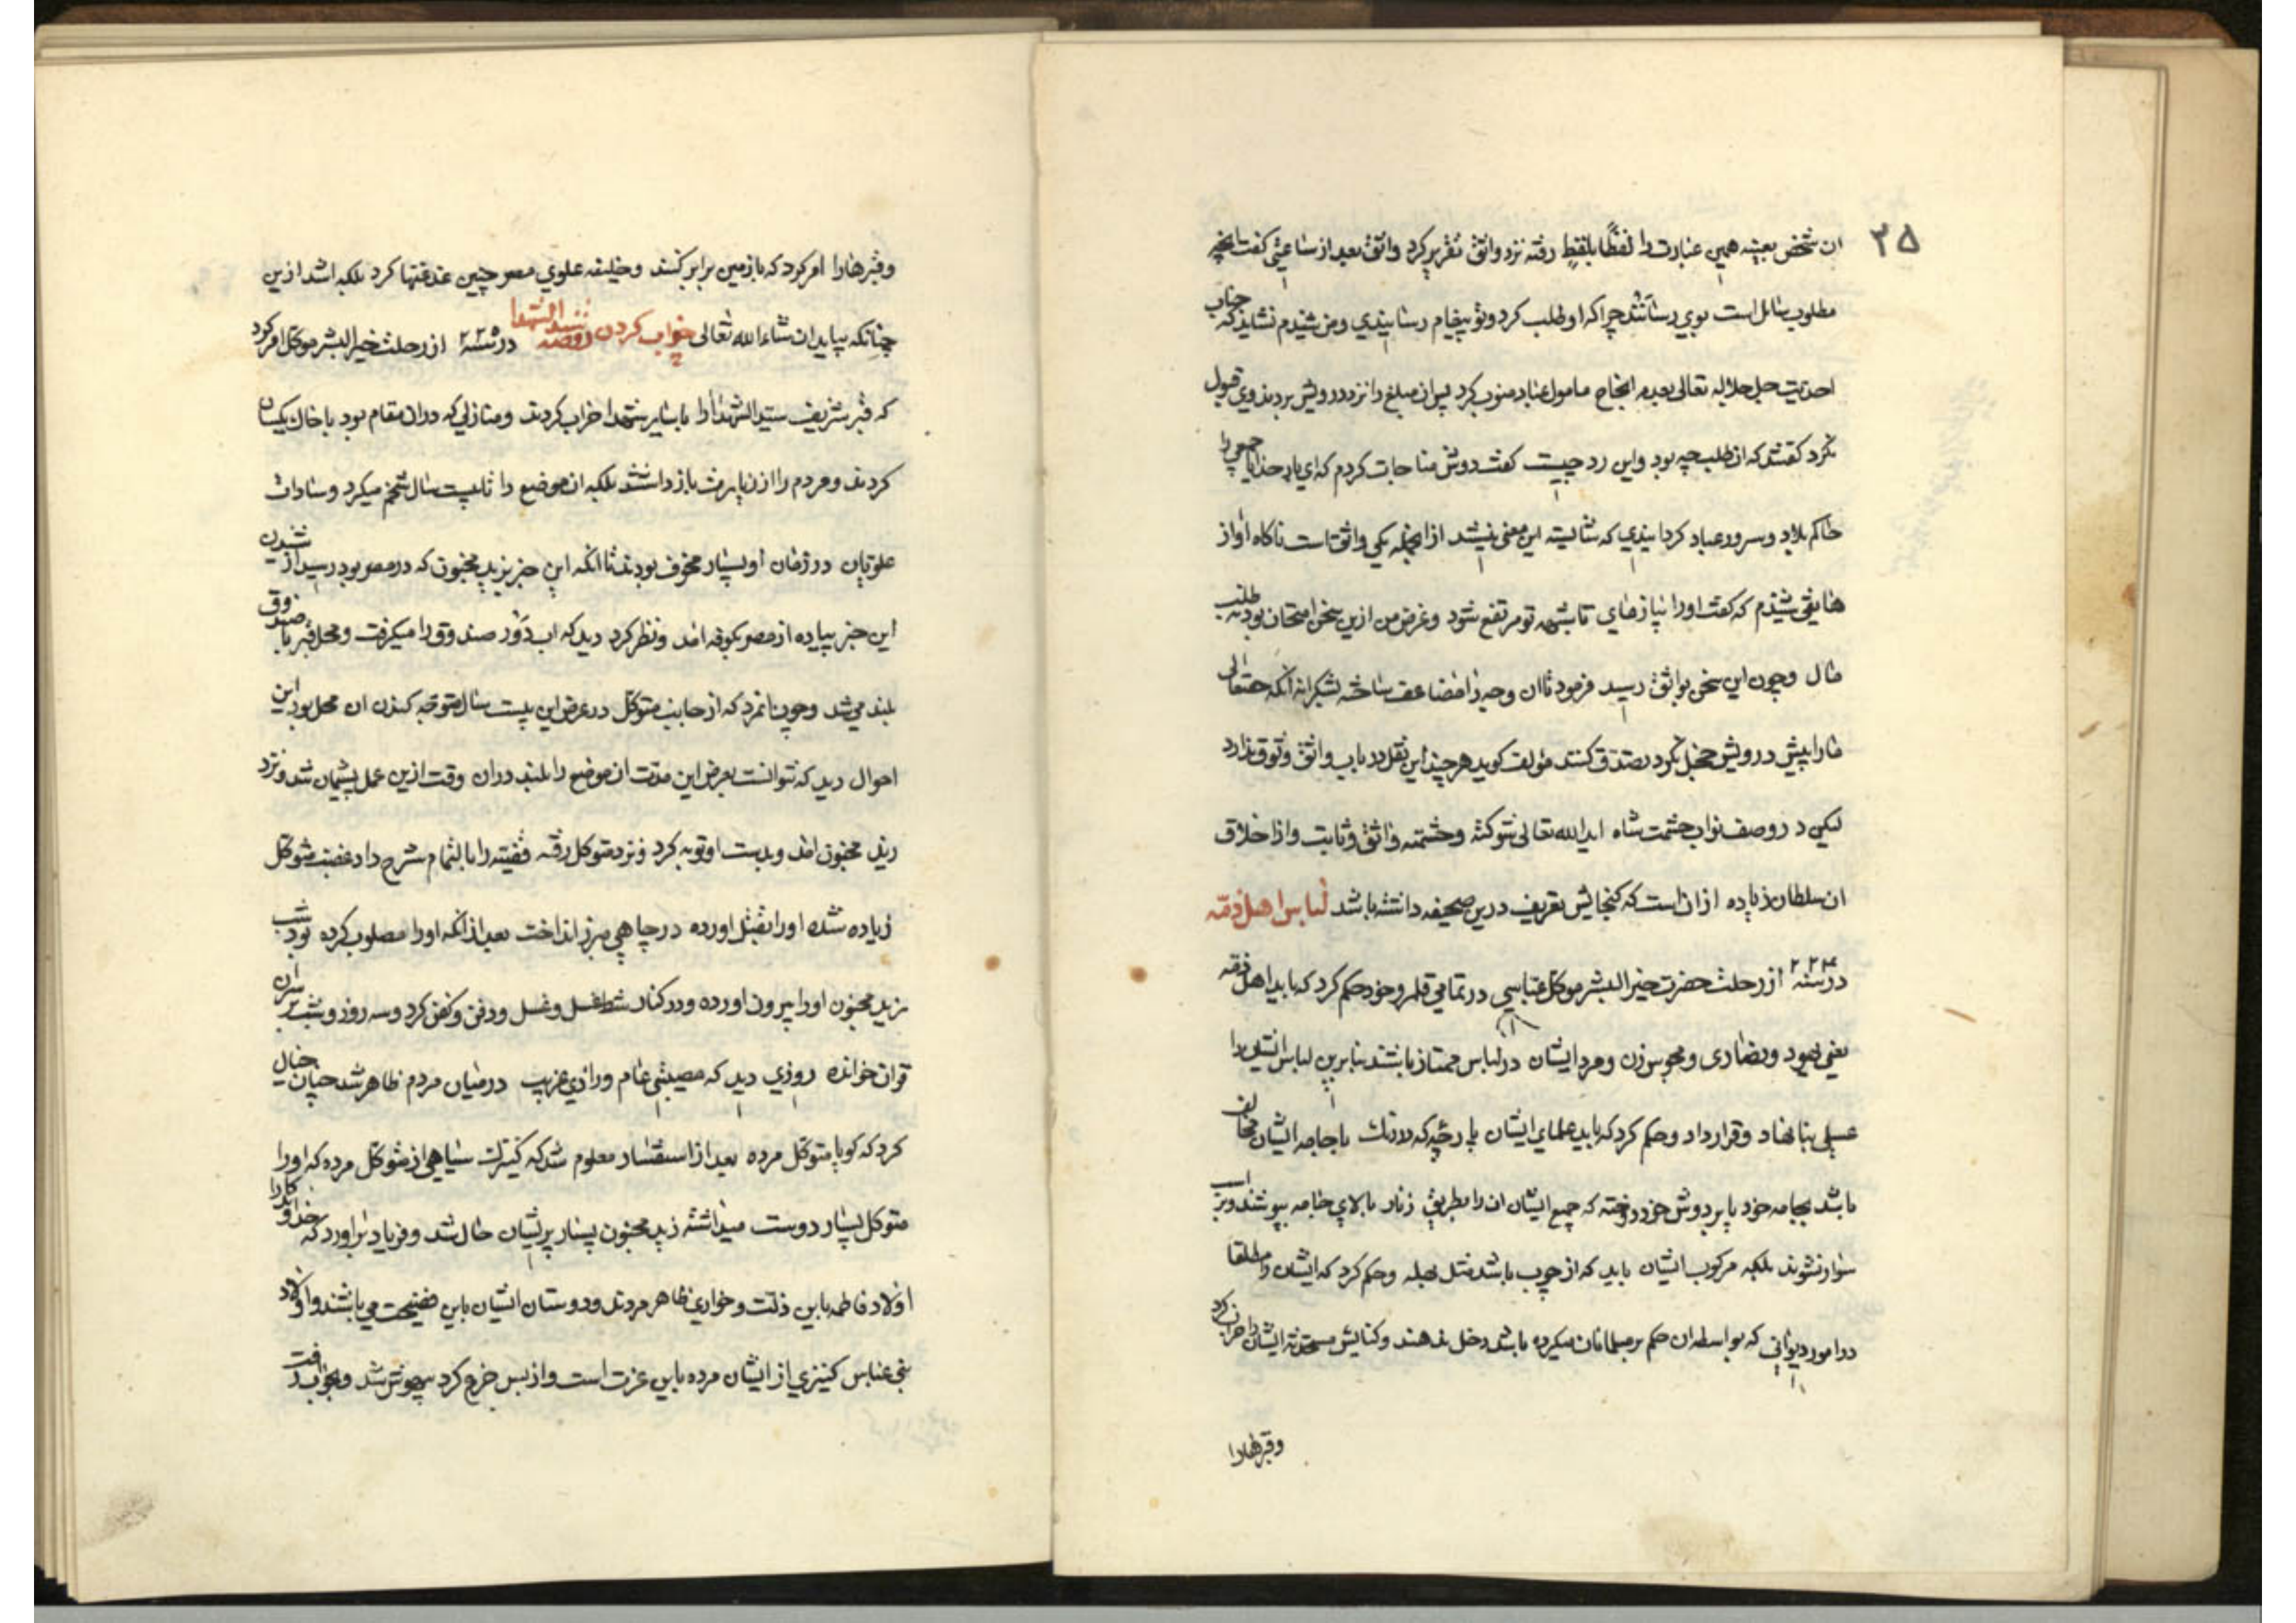 ۳۵
ان شخص بعینه همین عبارت را لفظًا بلفظٍ رفته نزد واثق تقریر کرد واثق بعد از ساعتی کفت انچه
مطلوب سائل است بوی رسانند چرا که او طلب کرد و تو پیغام رسانیدی و من شنیدم نشاید که جناب
احدیت جل جلاله تعالی بعدم انجاح مامول عباد منوب کرد پس ان مبلغ را نزد درویش بردند وی قبول
نکرد کفتند که ان طلب چه بود و این رد چیست کفت دوش مناجات کردم که ای بار خدایا جمعی را
حاکم بلاد و سرور عباد کردانیدی که شایسته این معنی نیستند از انجمله یکی واثق است ناکاه اواز
هاتفی شنیدم که کفت اورا بیازمای تا شبهه تو مرتفع شود و غرض من ازین سخن امتحان بود نه طلب
مال و چون این سخن بواثق رسید فرمود تا ان وجه را مضاعف ساخته بشکرانه انکه حقتعالی
مارا پیش درویش خجل نکرد تصدق کنند مؤلف کوید هر چند این نقل در باب واثق وثوق ندارد
لیکن در وصف نواب حشمت شاه ایدالله تعالی شوکته و حشمته واثق و ثابت و اذا خلاق
ان سلطان زیاده از ان است که کنجایش تعریف درین صحیفه داشته باشد لباس اهل ذمّه
در سنه ۲۲۴ از رحلت حضرت خیرالبشر متوکل عباسی در تمامی قلمرو خود حکم کرد که باید اهل ذمه
یعنی یهود و نصاری و مجوس زن و مرد ایشان در لباس ممتاز باشند بنابرین لباس ایشان را
عسلی بنا نهاد و قرار داد و حکم کرد که باید علمای ایشان پارچه که در رنک با جامه ایشان مخالف
باشد بجامه خود یا بر دوش خود دوخته که جمیع ایشان ان را بطریق زنار بالای جامه بپوشند و بر اسب
سوار نشوند بلکه مرکوب ایشان باید که از چوب باشد مثل بهله و حکم کرد که ایشان را مطلقا
در امور دیوانی که بواسطه ان حکم بر مسلمانان میکرده باشند دخل ندهند و کنایس مستحدثه ایشان را خراب کرد
وقبرهارا
وقبرهارا امر کرد که با زمین برابر کنند و خلیفه علوی مصر چنین غدغنها کرد بلکه اشد ازین
چنانکه بیاید ان شاء الله تعالی خراب کردن روضه سید الشهدا در سنه ۲۲۵ از رحلت خیرالبشر متوکل امر کرد
که قبر شریف سید الشهدا را با سایر شهدا خراب کردند و منازلی که در ان مقام بود با خاک یکسان
کردند و مردم را از زیارت باز داشتند بلکه ان موضع را تا بیست سال شخم میکرد و سادات
علویان در زمان او بسیار مخوف بودند تا انکه این خبر بزید مجنون که در مصر بود رسید از شنیدن
این خبر پیاده از مصر بکوفه امد و نظر کرد دید که اب دَوْر صندوق را میکرفت و محل قبر با صندوق
بلند می شد و چون نامرد که از جانب متوکل در عرض این بیست سال متوجه کندن ان محل بود این
احوال دید که نتوانست بعرض این مدت ان موضع را بلند دران وقت ازین عمل پشیمان شد و نزد
زید مجنون امد و بدست او توبه کرد و نزد متوکل رفته قضیه را بالتمام شرح داد غضب متوکل
زیاده شده اورا بقتل اورده در چاهی مبرز انداخت بعد از انکه اورا مصلوب کرده بود شب
زید مجنون اورا بیرون اورده و در کنار شط غسل و غسل و دفن و کفن کرد و سه روز و شب بر سر ان
قران خوانده روزی دید که مصیبتی عام و رازی غریب در میان مردم ظاهر شد چنان خیال
کرد که کویا متوکل مرده بعد از استفسار معلوم شد که کنیزک سیاهی از متوکل مرده که اورا
متوکل بسیار دوست میداشته زید مجنون بسیار پریشان حال شد و فریاد براورد که خداوندکارا
اولاد فاطمه باین ذلت و خواری ظاهر مردند و دوستان ایشان باین فضیحت می باشند و اولاد
بنی عباس کنیزی از ایشان مرده باین عزت است و از بس جزع کرد بیهوش شد و بخواب رفت